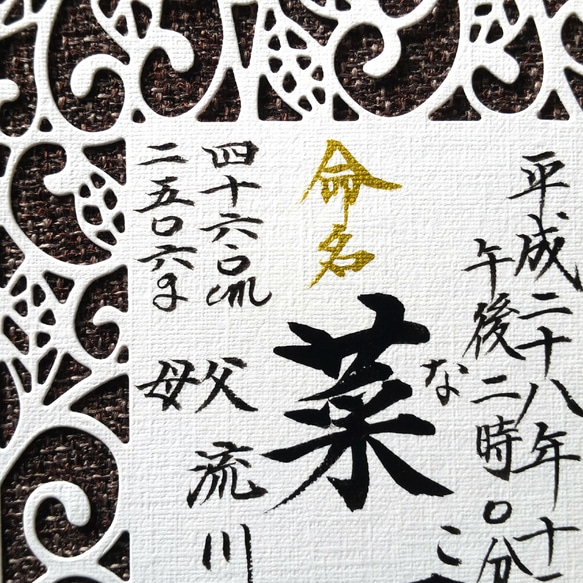 平成二十八年十二
午後二時〇分
なこ
命名
菜
四十六・〇cm
二五〇六g
父 流川
母